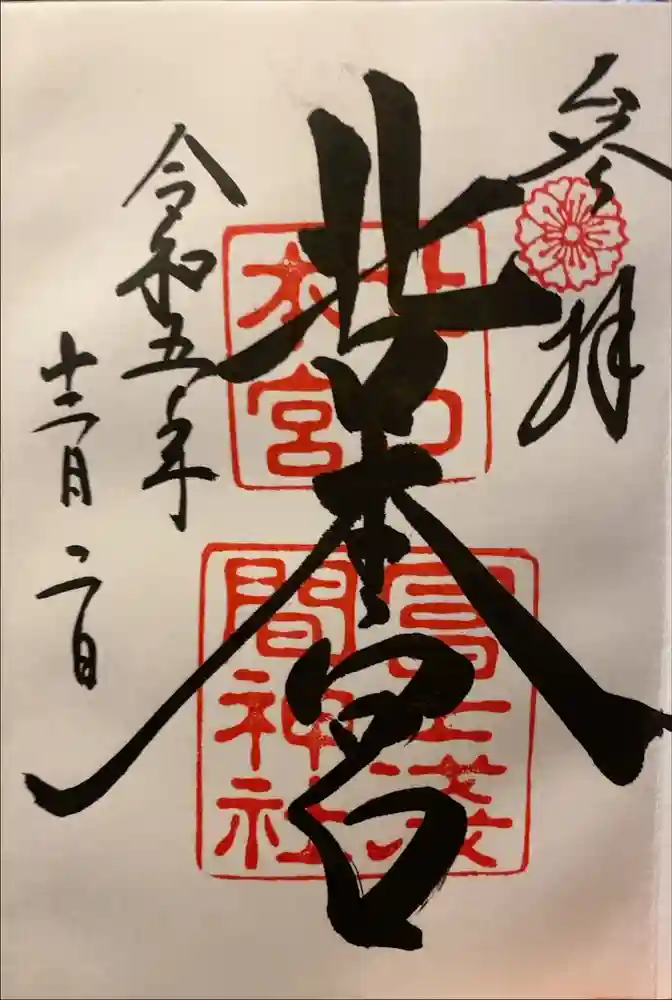 参拝
北口本宮
北口
本宮
冨士淺
間神社
令和五年
十二月二日